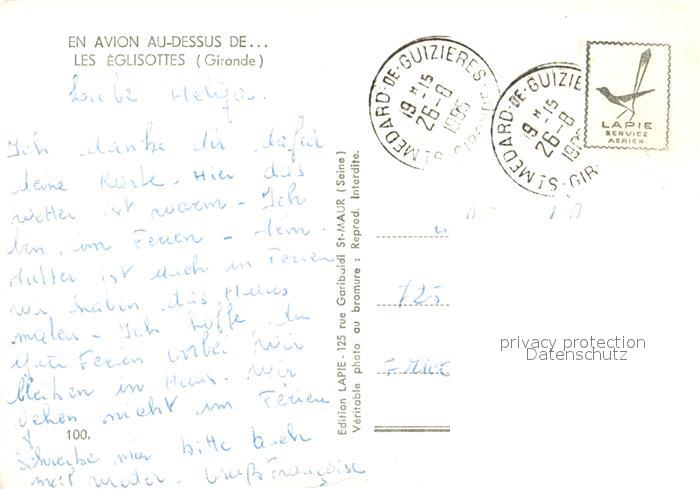 EN AVION AU-DESSUS DE...
LES ÉGLISOTTES (Gironde)
Ich danke dir dafür
deine Karte. Hier das
wetter ist warm - Ich
bin im Ferien - dein
Mutter ist auch in Ferien
wir haben das Haus
malen - Ich hoffe du
gute Ferien vorbei. wir
bleiben im Haus. Wir
gehen nicht im Ferien
Schreibe mir bitte
mal weiter. Gruß Françoise
100.
Edition LAPIE - 125 rue Garibaldi St-MAUR (Seine)
Véritable photo au bromure : Reprod. Interdite.
ST MEDARD-DE-GUIZIERES GIRONDE
19 H-15
26-8
1985
ST MEDARD-DE-GUIZIE
GIR
19 H-15
26-8
LAPIE
SERVICE
AERIEN
125
privacy protection
Datenschutz